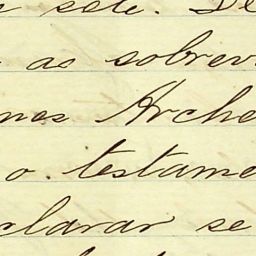 sete. De
as sobrev
nes Arche
o testame
clarar se